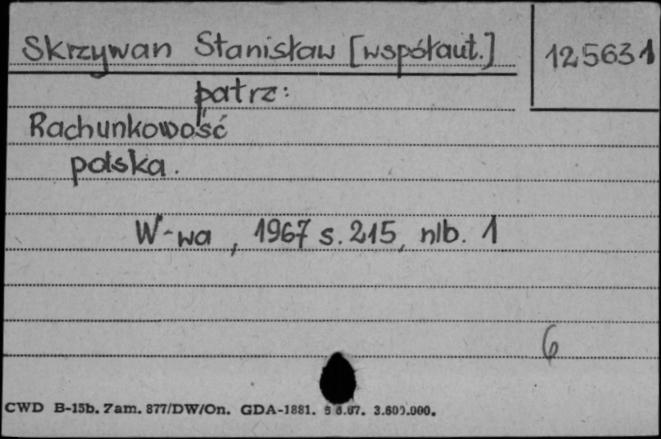 Skrzywan Stanisław [współaut.]
125631
patrz:
Rachunkowość
polska.
W-wa, 1967 s. 215, nlb. 1
6
CWD B-15b. Zam. 877/DW/On. GDA-1881. 6.67. 3.600.000.